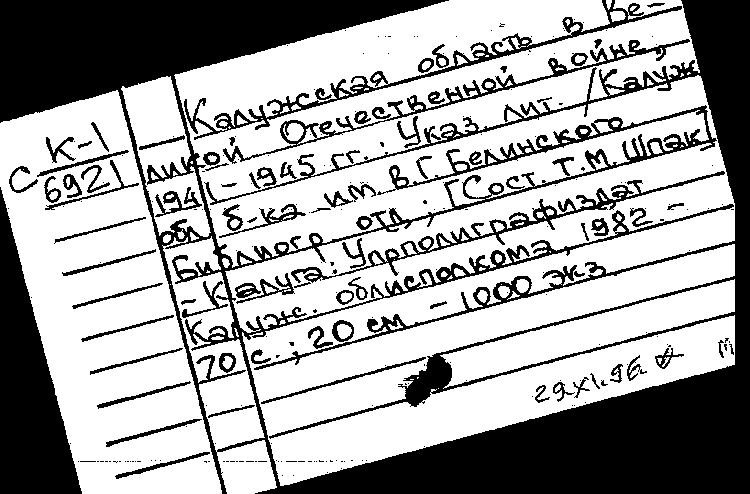 С К-1
6921
Калужская область в Ве-
ликой Отечественной войне,
1941-1945 гг.: Указ. лит. / Калуж.
обл. б-ка им. В.Г. Белинского.
Библиогр. отд.; [Сост. Т.М. Шпак]
- Калуга: Упрполиграфиздат
Калуж. облисполкома, 1982. -
70 с.; 20 см. - 1000 экз.
29.XI.96